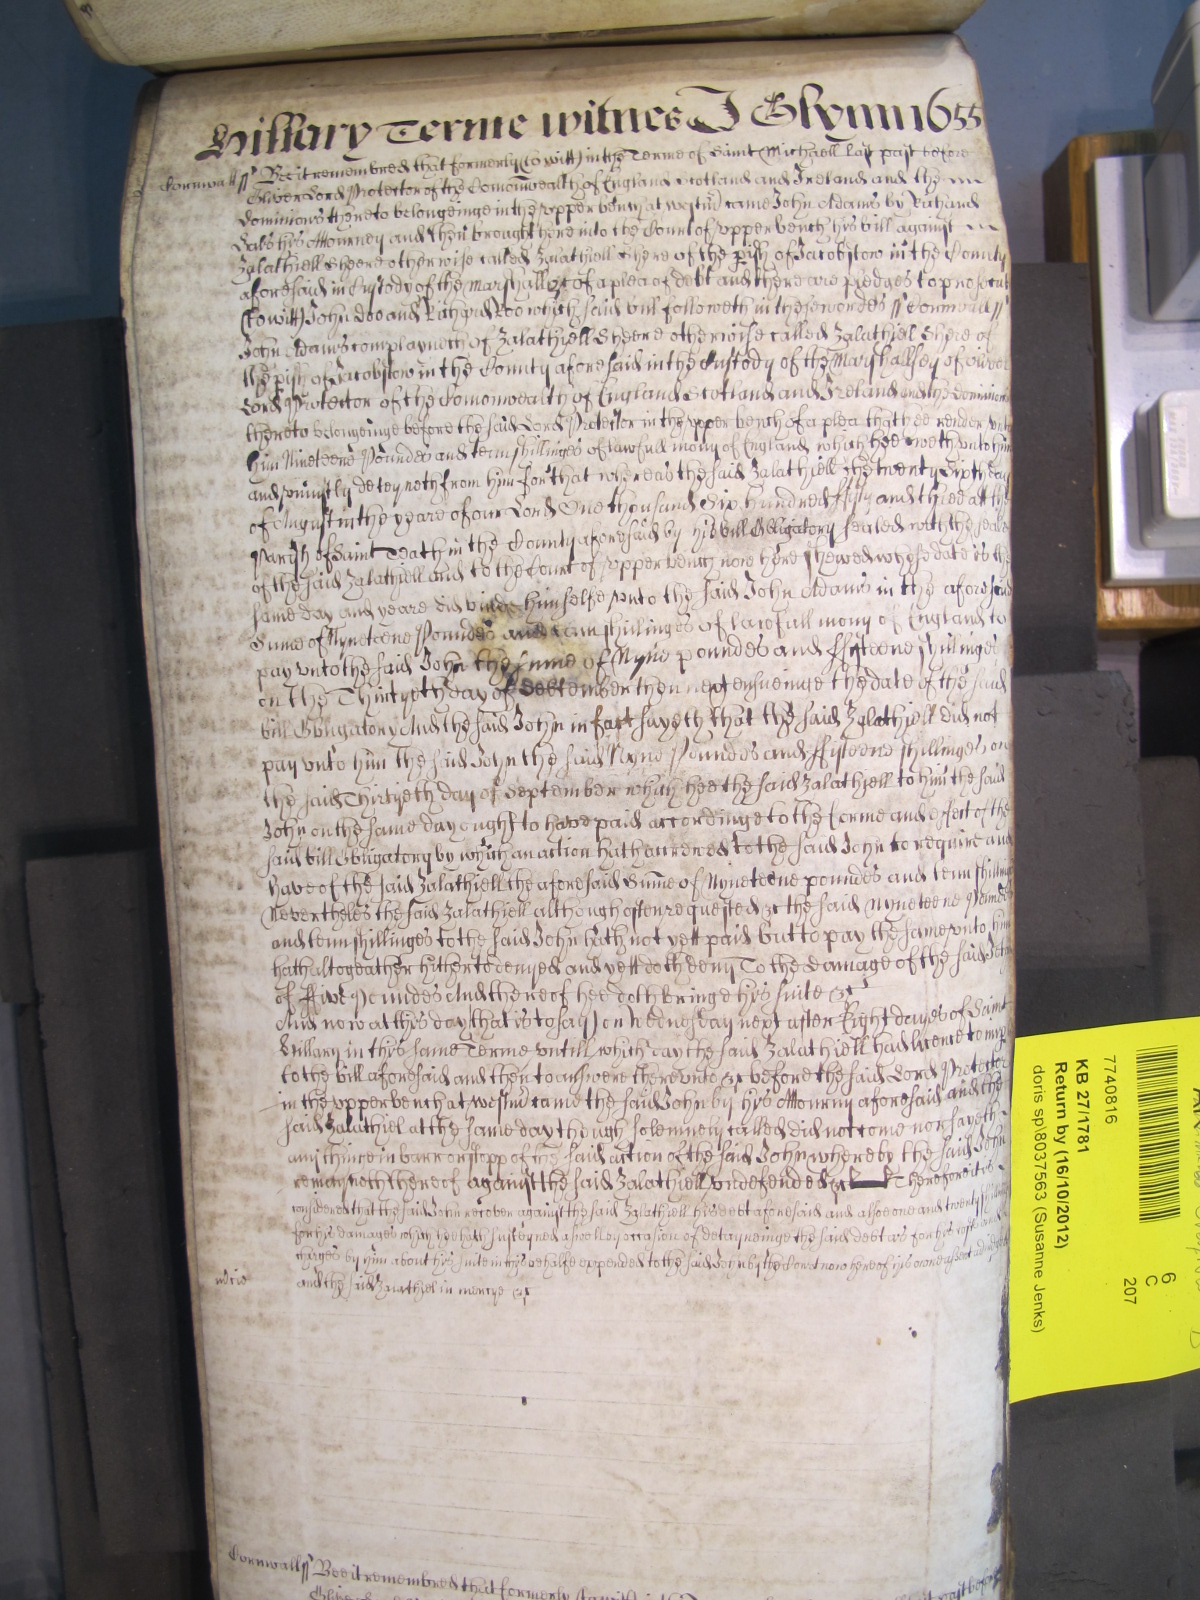 Hillary Terme witnes J Glynn 1655
Cornwall ss Bee it remembred that formerly (to witt) in the Terme of Saint Michaell last past before
Oliver Lord Protector of the Comonwealth of England Scotland and Ireland and the
dominions thereto belongeinge in the upper bench at westm came John Adams by Richard
his Attourney and then brought here into the Court of upper bench his bill against
Zalathiell Sheere otherwise called Zalathiell Shere of the pish of Jacobstow in the County
aforesaid in Custody of the Marshall &c of a plea of debt and there are pledges to prosecute
(to witt) John Doo and Richard Roo which said bill followeth in these wordes ss Cornwall ss
John Adams complayneth of Zalathiell Sheere otherwise called Zalathiell Shere of
the pish of Jacobstow in the County aforesaid in the Custody of the Marshallsey of
Lord Protector of the Comonwealth of England Scotland and Ireland and the dominions
thereto belongeinge before the said Lord Protector in the upper bench of a plea that hee render unto
him Nineteene Poundes and tenn shillinges of lawfull mony of England which hee oweth unto him
and uniustly deteyneth from him for that whereas the said Zalathiell the twenty Sixth day
of August in the yeare of our Lord One thousand Six hundred fifty and three att the
Parish of Saint Teath in the County aforesaid by his bill Obligatory sealed with the seale
of the said Zalathiell and to the Court of upper bench now here shewed whose date is the
same day and yeare did binde himselfe unto the said John Adams in the aforesaid
Sume of Nyneteene Poundes and tenn shillinges of lawfull mony of England to
pay unto the said John the sume of Nyne poundes and ffifteene shillinges
on the Thirtyeth day of September then next ensueinge the date of the said
bill Obligatory And the said John in fact sayeth that the said Zalathiell did not
pay unto him the said John the said Nyne Poundes and ffifteene shillinges on
the said Thirtyeth day of September which hee the said Zalathiell to him the said
John on the same day ought to have paid accordinge to the forme and effect of the
said bill Obligatory by which an action hath accrened to the said John to require and
have of the said Zalathiell the aforesaid Sume of Nyneteene poundes and tenn shillinges
Neverthelesse the said Zalathiell although often requested &c the said Nyneteene Poundes
and tenn shillinges to the said John hath not yett paid but to pay the same unto him
hath altogeather hitherto denyed and yett doth deny To the Damage of the said John
of ffive Poundes And thereof hee doth bringe his suite &c
And now at this day (that is to say) on Wednesday next after Eight dayes of Saint
Hillary in this same Terme untill which day the said Zalathiell had licence to imparle
to the bill aforesaid and then to answere thereunto &c before the said Lord Protector
in the upper bench at westm came the said John by his Attourny aforesaid and the
said Zalathiel at the same day though solemnly called did not come nor sayeth
any thinge in barr or stopp of the said action of the said John whereby the said John
remayneth thereof against the said Zalathiell undefended &c Therefore it is
considered that the said John recover against the said Zalathiell his debt aforesaid and alsoe one and twenty shillinges
for his damages which hee hath susteyned aswell by occasion of deteyneinge the said debt as for his costs and
charges by him about his suite in this behalfe expended to the said John by the Court now here of his owne assent adiudged
and the said Zalathiel in mercye &c
Cornwall ss Bee it remembred that formerly (to witt) in the
7740816
KB 27/1781
Return by (16/10/2012)
doris sp\8037563 (Susanne Jenks)
6
C
207